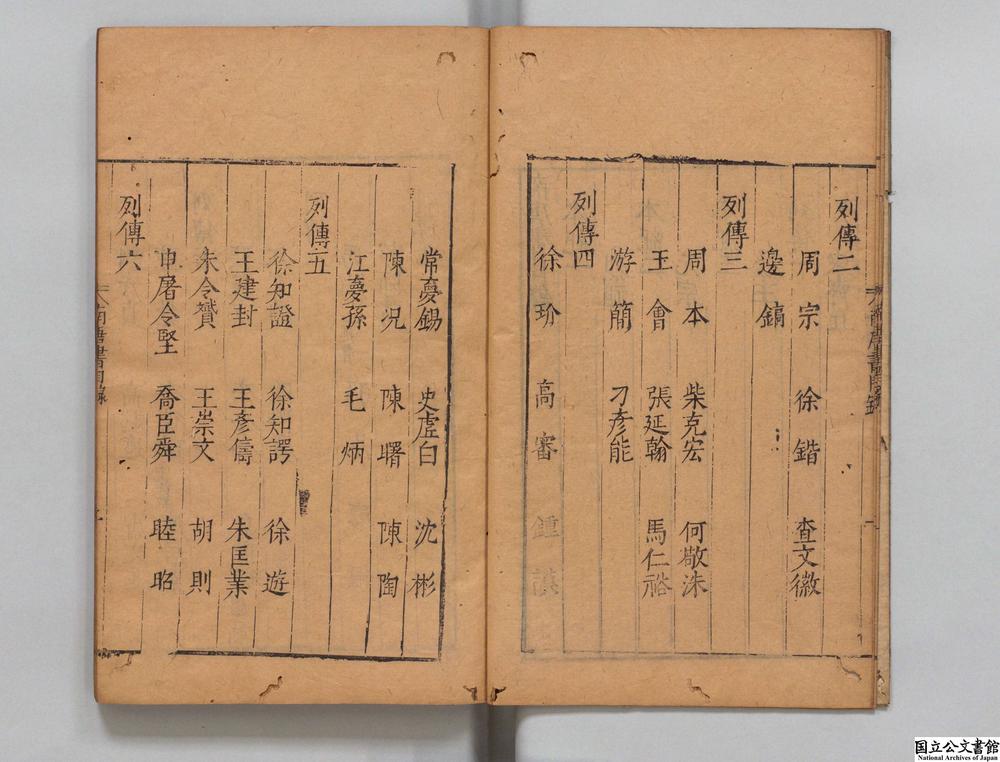 列傳二
周宗 徐鍇 查文徽
邊鎬
列傳三
周本 柴克宏 何敬洙
王會 張延翰 馬仁裕
游簡 刁彥能
列傳四
徐玠 高審 鍾謨
常夢錫 史虛白 沈彬
陳況 陳曙 陳陶
江夢孫 毛炳
列傳五
徐知證 徐知諤 徐遊
王建封 王彥儔 朱匡業
朱令贇 王崇文 胡則
申屠令堅 喬臣舜 睦昭
列傳六
南唐書目錄
国立公文書館
National Archives of Japan